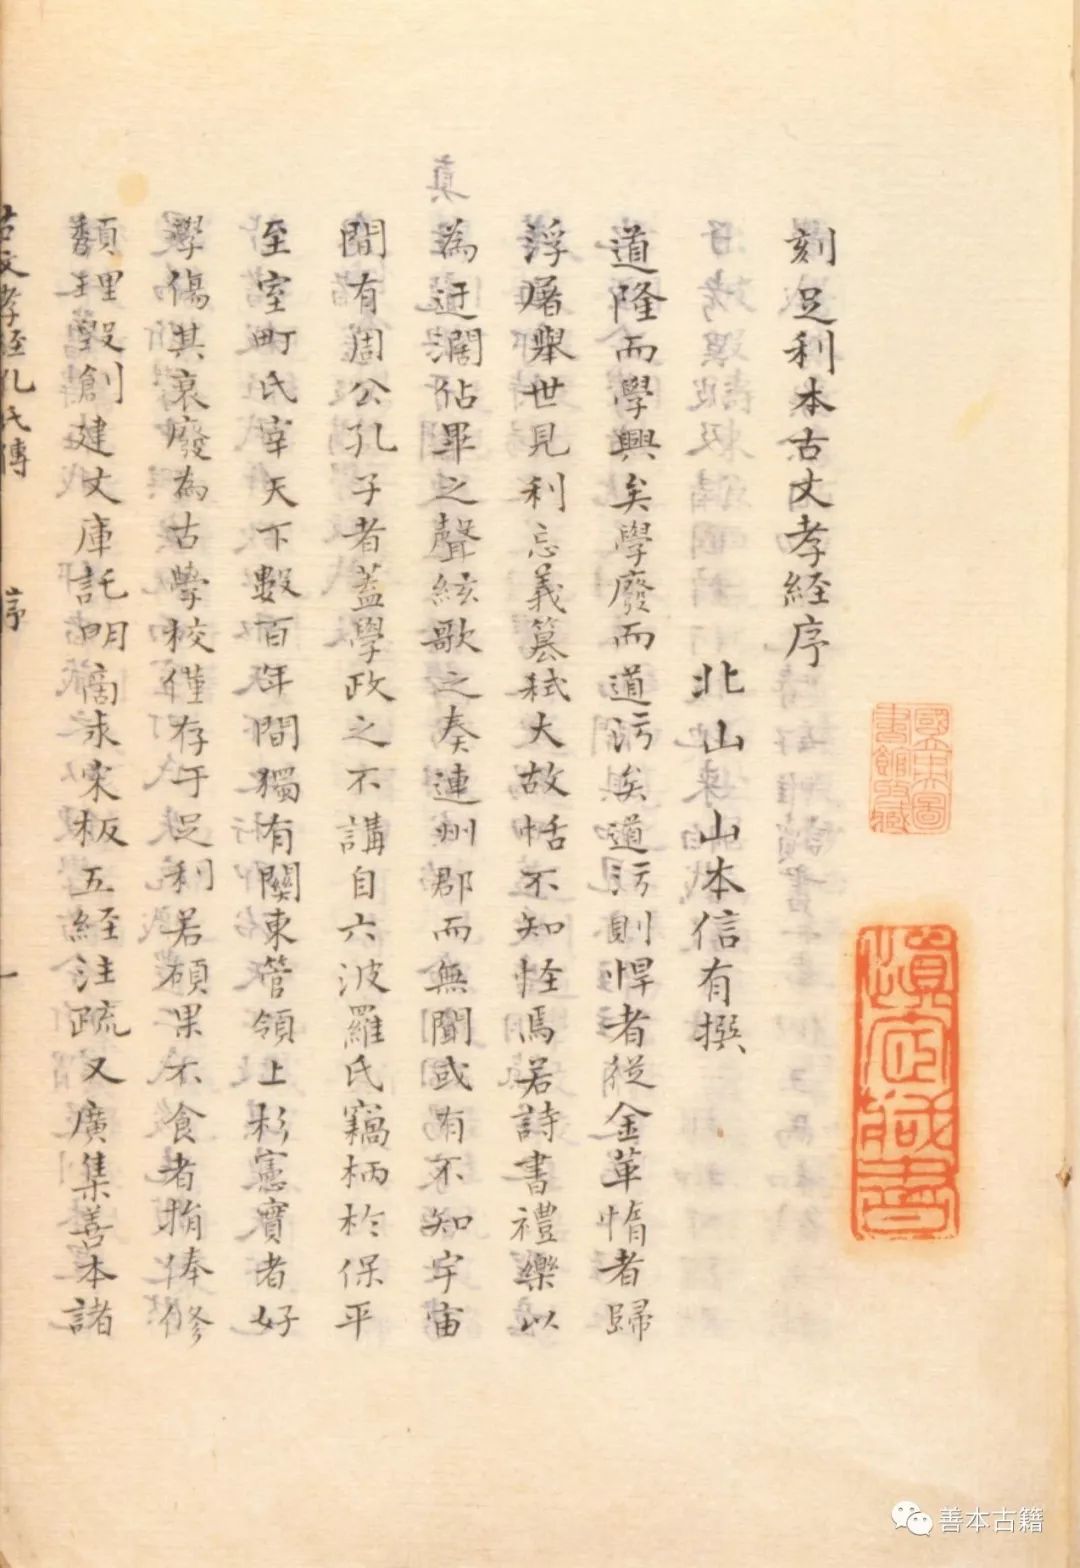 刻足利本古文孝経序
北山 山本信有撰
道隆而學興矣學廢而道污矣道污則悍者從金革惰者歸
浮屠舉世見利忘義篡弒大故恬不知怪焉若詩書禮樂以
為迂濶佔畢之聲絃歌之奏連州郡而無聞或有不知宇宙
間有周公孔子者蓋學政之不講自六波羅氏竊柄於保平
至室町氏宰天下數百年間獨有關東管領上杉憲實者好
學傷其衰廢為古學校僅存于足利若碩果不食者捐俸修
頹理毀創建文庫託明商求宋板五経注疏又廣集善本諸
古文孝経孔氏傳 序 一
國立中央圖書館收藏
真
善本古籍